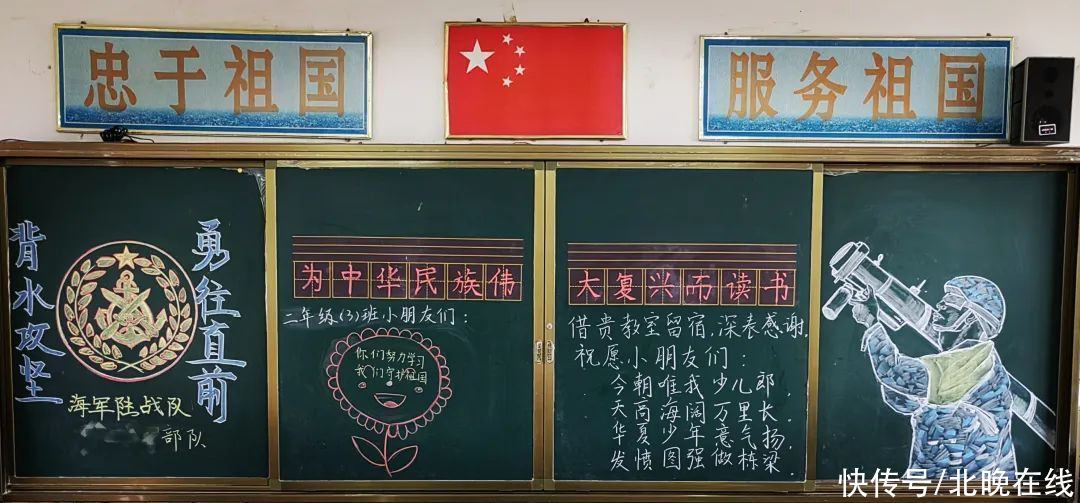 忠于祖国
服务祖国
背水攻坚
勇往直前
海军陆战队
部队
为中华民族伟
大复兴而读书
二年级(3)班小朋友们：
你们努力学习
我们守护祖国
借贵教室留宿，深表感谢。
祝愿小朋友们：
今朝唯我少儿郎，
天高海阔万里长，
华夏少年意气扬，
发愤图强做栋梁。
快传号/北晚在线